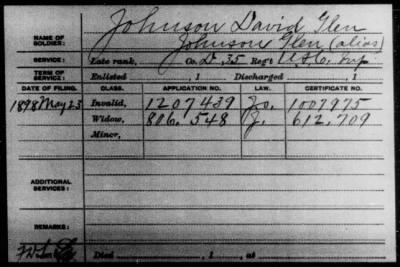 NAME OF SOLDIER: Johnson David Glen
Johnson Glen (alias)
SERVICE: Late rank, Co. D, 35 Regt U.S.C. Inf
TERM OF SERVICE: Enlisted , 1 Discharged , 1
DATE OF FILING. CLASS. APPLICATION NO. LAW. CERTIFICATE NO.
1898 May 23 Invalid, 1207439 1007975
Widow, 806.548 612,709
Minor,
ADDITIONAL SERVICES:
REMARKS:
Died , 1 , at